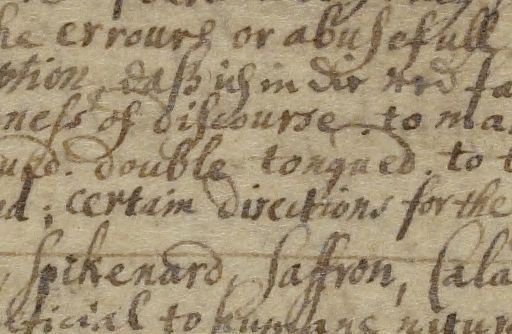 he errours or abusefull
ption, daß ich in die
ness of discourse. to ma
ued. double tongued. to t
nd; certain directions for the
, spikenard, saffron, Cala
eficial to humane natur